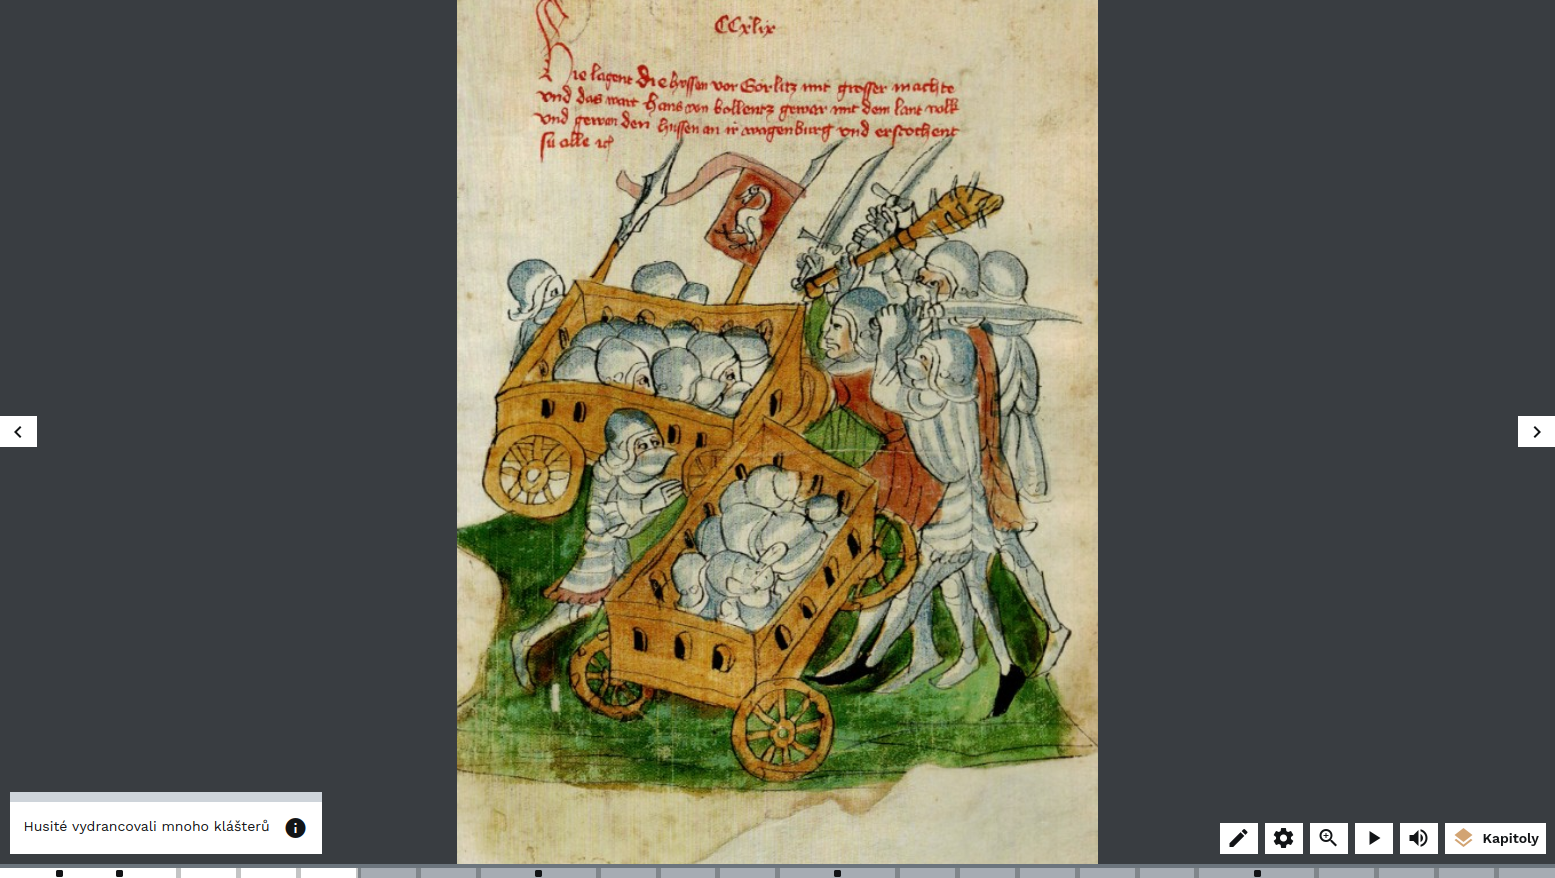 CCxlix
Hie lagent die hussen vor Görlitz mit grosser machte
vnd das wart hans von bollentz gewar mit dem lant volk
vnd gewan den hussen an ir wagenburg vnd erstochent
sü alle
Husité vydrancovali mnoho klášterů
Kapitoly